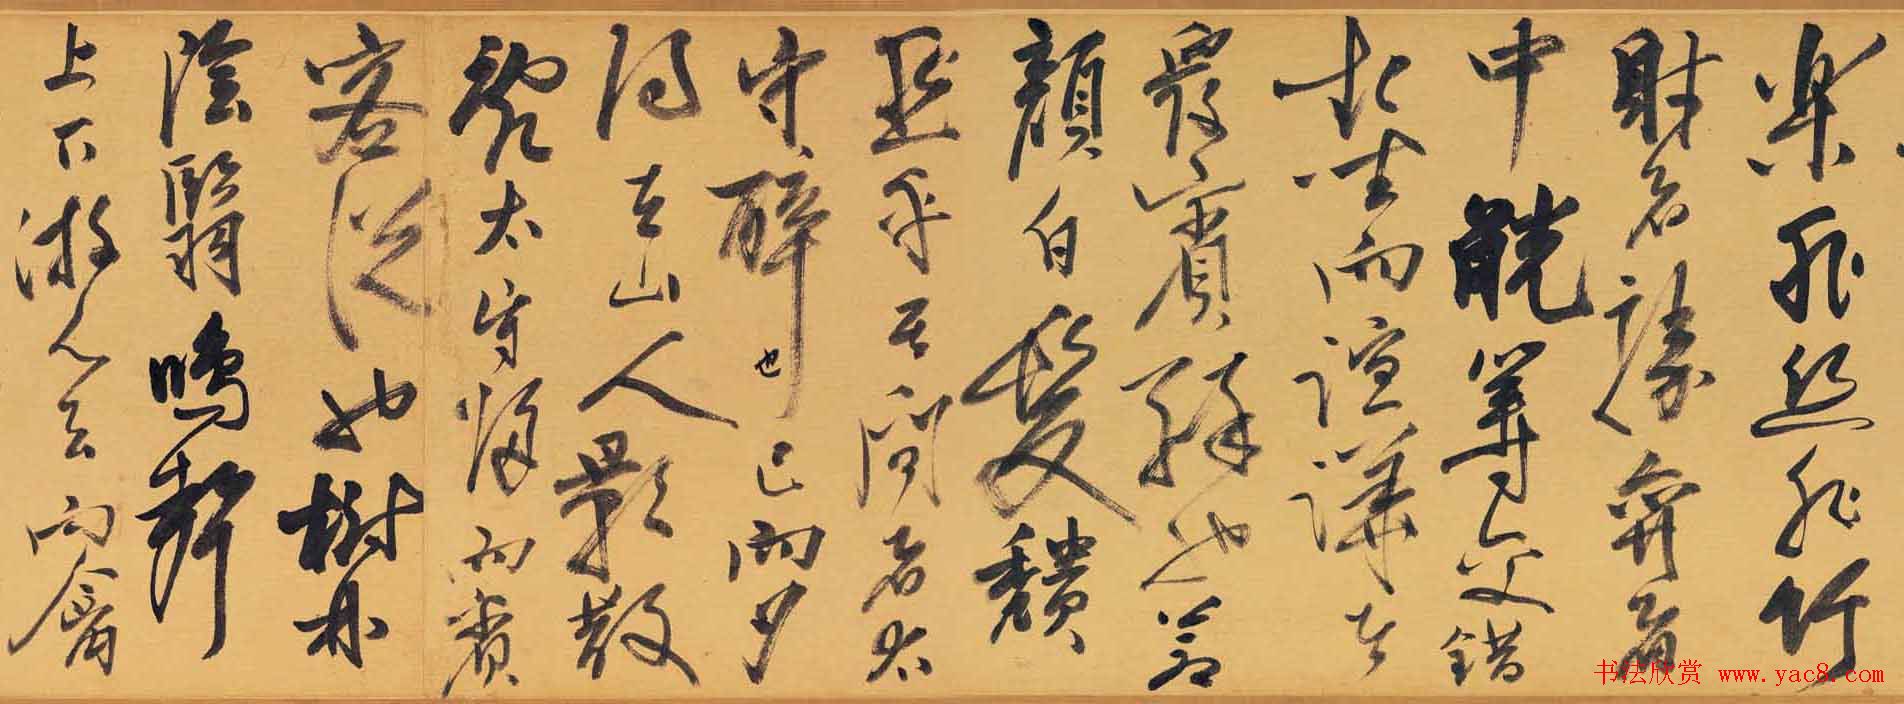 樂非絲非竹
射者勝弈者
中觥籌交錯
起坐而諠譁者
衆賓歡也蒼
顏白髮頹
然乎其間者太
守醉也已而夕
陽在山人影散
亂太守歸而賓
客從也樹林
陰翳鳴聲
上下游人去而禽
书法欣赏 www.yac8.com